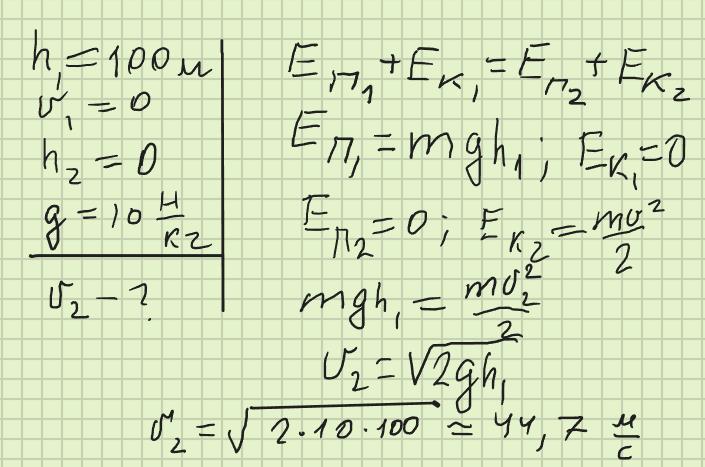 h₁ = 100 м
v₁ = 0
h₂ = 0
g = 10 Н/кг
v₂ - ?
Eп₁ + Eк₁ = Eп₂ + Eк₂
Eп₁ = mgh₁; Eк₁ = 0
Eп₂ = 0; Eк₂ = mv²/2
mgh₁ = mv₂²/2
v₂ = √2gh₁
v₂ = √2·10·100 ≃ 44,7 м/с